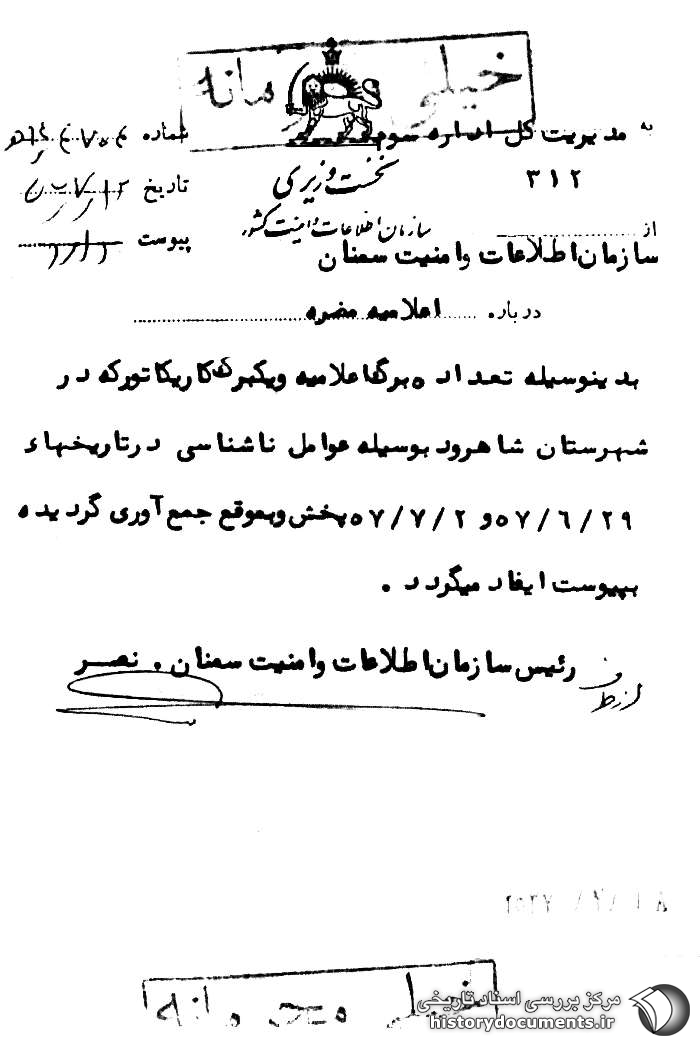 خیلی محرمانه
به مدیریت کل اداره سوم
۳۱۲
نخست وزیری
سازمان اطلاعات و امنیت کشور
شماره
تاریخ
پیوست
از
سازمان اطلاعات و امنیت سمنان
درباره اعلامیه مضره
بدینوسیله تعداد ۵ برگ اعلامیه ویکبرگ کاریکاتور که در
شهرستان شاهرود بوسیله عوامل ناشناسی در تاریخهاء
۵۷/۶/۲۹ و ۵۷/۷/۲ پخش و بموقع جمع آوری گردیده
بپیوست ایفاد میگردد .
رئیس سازمان اطلاعات و امنیت سمنان . نصر
از طرف
خیلی محرمانه
مرکز بررسی اسناد تاریخی
historydocuments.ir